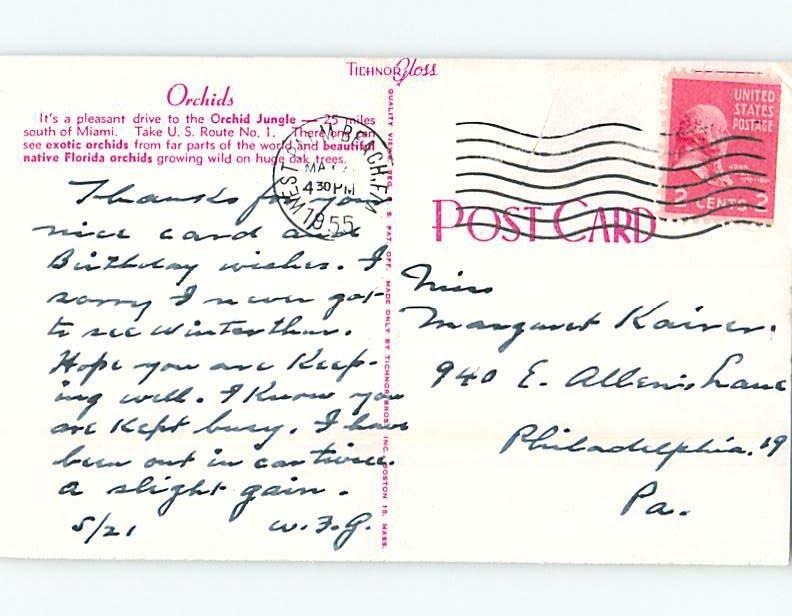 TICHNOR Gloss
Orchids
It's a pleasant drive to the Orchid Jungle — 25 miles
south of Miami. Take U. S. Route No. 1. There one can
see exotic orchids from far parts of the world and beautiful
native Florida orchids growing wild on huge oak trees.
Thanks for your
nice card and
Birthday wishes. I
sorry I never got
to see Winterthur.
Hope you are Keep-
ing well. I Know you
are Kept busy. I have
been out in car twice.
a slight gain.
5/21 W.F.G.
WEST PALM BEACH, FLA.
MAY
4 30 PM
1955
QUALITY VIEWS REG. U. S. PAT. OFF. MADE ONLY BY TICHNOR BROS. INC. BOSTON 15, MASS.
UNITED
STATES
POSTAGE
JOHN
2 CENTS 2
POST CARD
Miss
Margaret Kaiser.
940 E. Allen's Lane
Philadelphia. 19
Pa.